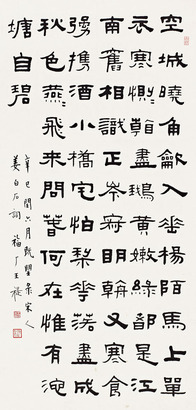 空城曉角龡入垂楊陌馬上單
衣寒惻〻看盡鵝黃嫩綠都是江
南舊相識正岑寂明朝又寒食
彊攜酒小橋宅怕棃花落盡成
秋色燕〻飛來問萅何在惟有池
塘自碧
辛巳閏六月既望彔宋人
姜白石詞 福厂王禔